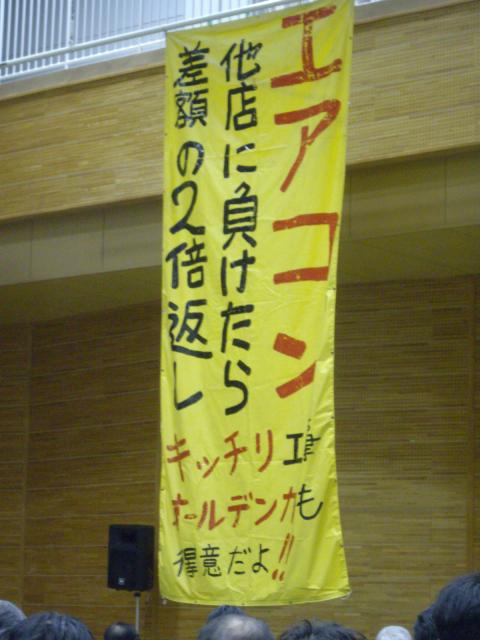 エアコン
他店に負けたら
差額の2倍返し
キッチリ工事も
オールデンカ
得意だよ!!